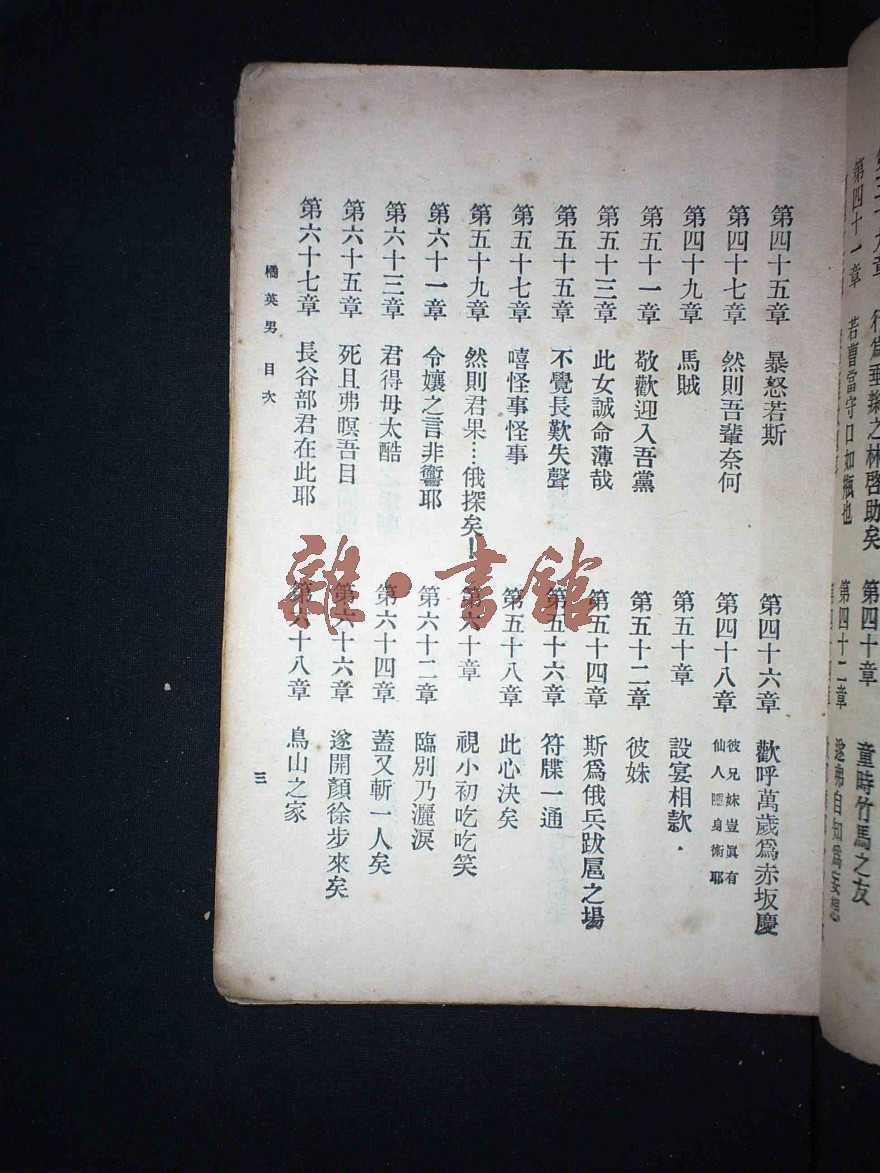 第四十一章　若曹當守口如瓶也
第四十章　童時竹馬之友
第四十二章
第四十五章　暴怒若斯
第四十六章　歡呼萬歲爲赤坂慶
第四十七章　然則吾輩奈何
第四十八章　彼兄妹豈眞有仙人隱身術耶
第四十九章　馬賊
第五十章　設宴相款
第五十一章　敬歡迎入吾黨
第五十二章　彼姝
第五十三章　此女誠命薄哉
第五十四章　斯爲俄兵跋扈之場
第五十五章　不覺長歎失聲
第五十六章　符牒一通
第五十七章　嘻怪事怪事
第五十八章　此心決矣
第五十九章　然則君果…俄探矣！
第六十章　視小初吃吃笑
第六十一章　令孃之言非讆耶
第六十二章　臨別乃灑淚
第六十三章　君得毋太酷
第六十四章　蓋又斬一人矣
第六十五章　死且弗瞑吾目
第六十六章　遂開顏徐步來矣
第六十七章　長谷部君在此耶
第六十八章　鳥山之家
橘英男　目次
三
雜·書館